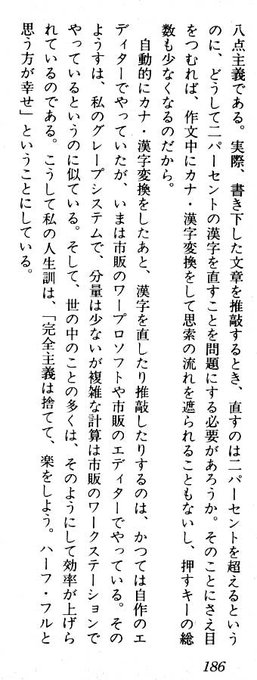 八点主義である。実際、書き下した文章を推敲するとき、直すのは二パーセントを超えるという
のに、どうして二パーセントの漢字を直すことを問題にする必要があろうか。そのことにさえ目
をつむれば、作文中にカナ・漢字変換をして思索の流れを遮られることもないし、押すキーの総
数も少なくなるのだから。
自動的にカナ・漢字変換をしたあと、漢字を直したり推敲したりするのは、かつては自作のエ
ディターでやっていたが、いまは市販のワープロソフトや市販のエディターでやっている。その
ようすは、私のグレープシステムで、分量は少ないが複雑な計算は市販のワークステーションで
やっているというのに似ている。そして、世の中のことの多くは、そのようにして効率が上げら
れているのである。こうして私の人生訓は、「完全主義は捨てて、楽をしよう。ハーフ・フルと
思う方が幸せ」ということにしている。
186